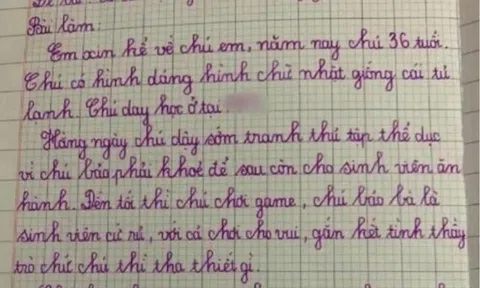 Bài làm:
Em xin kể về chú em, năm nay chú 36 tuổi.
Chú có hình dáng hình chữ nhật giống cái tủ
lạnh. Chú dạy học ở tại
Hàng ngày chú dậy sớm tranh thủ tập thể dục
vì chú bảo phải khoẻ để sau còn cho sinh viên ăn
hành. Đến tối thì chú chơi game, chú bảo là là
sinh viên cứ rủ, với cả chơi cho vui, gắn kết tình thầy
trò chứ chú thì tha thiết gì.